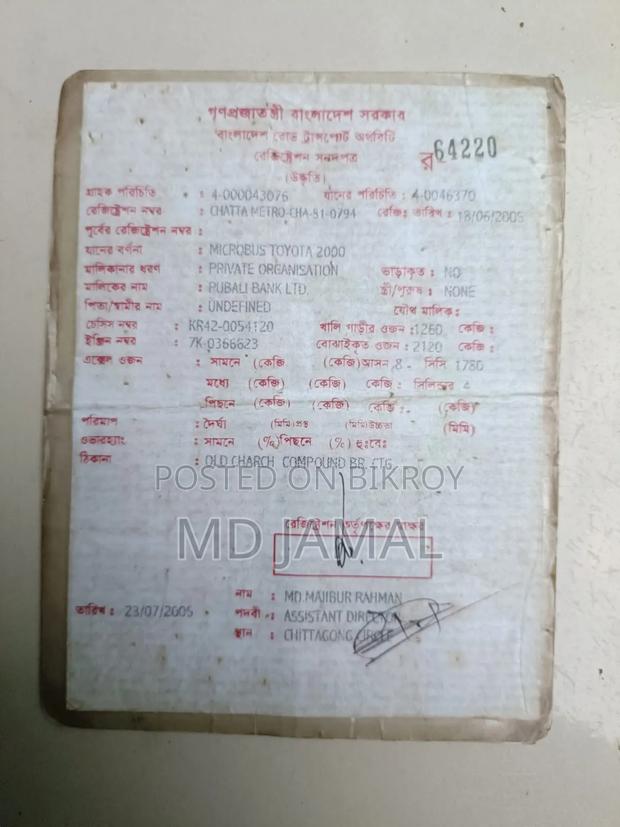 গণপ্রজাতন্ত্রী বাংলাদেশ সরকার
বাংলাদেশ রোড ট্রান্সপোর্ট অথরিটি
রেজিষ্ট্রেশন সনদপত্র
র 64220
গ্রাহক পরিচিতি : 4-000043076 যানের পরিচিতি : 4-0046370
রেজিষ্ট্রেশন নম্বর : CHATTA METRO-CHA-51-0794 রেজিঃ তারিখ : 18/06/2005
পূর্বের রেজিষ্ট্রেশন নম্বর :
যানের বর্ণনা : MICROBUS TOYOTA 2000
মালিকানার ধরণ : PRIVATE ORGANISATION ভাড়াকৃত : NO
মালিকের নাম : PUBALI BANK LTD. স্ত্রী/পুরুষ : NONE
পিতা/স্বামীর নাম : UNDEFINED যৌথ মালিক:
চেসিস নম্বর : KR42-0054120 খালি গাড়ীর ওজন :1260 কেজি :
ইঞ্জিন নম্বর : 7K-0366623 বোঝাইকৃত ওজন : 2120 কেজি :
এক্সেল ওজন : সামনে (কেজি) (কেজি) আসন 8 - সিসি 1780
মধ্যে (কেজি) (কেজি) কেজি : সিলিন্ডার 4
পিছনে (কেজি) (কেজি) কেজি :- (কেজি)
পরিমাপ : দৈর্ঘ্য (মিমি)প্রস্থ (মিমি)উচ্চতা (মিমি)
ওভারহ্যাং : সামনে (%)পিছনে (%)
ঠিকানা : OLD CHARCH COMPOUND BR. CTG
POSTED ON BIKROY
MD JAMAL
নাম : MD.MAJIBUR RAHMAN
তারিখ : 23/07/2005 পদবী : ASSISTANT DIRECTOR
স্থান : CHITTAGONG CIRCLE